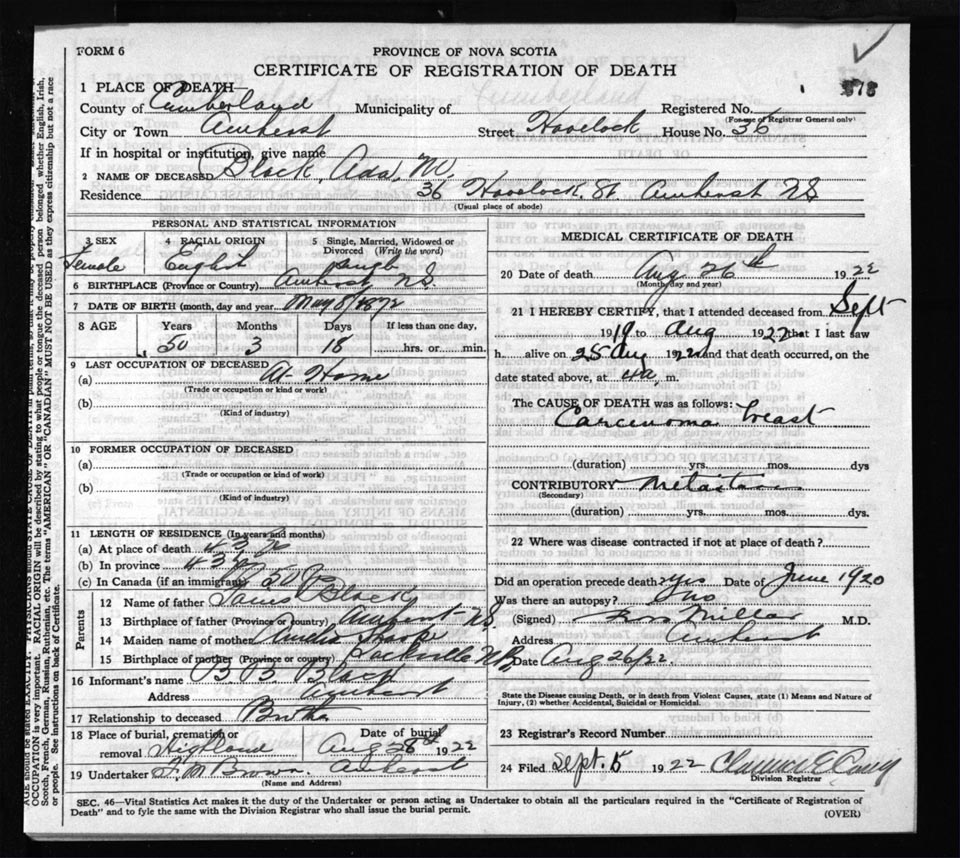 FORM 6
PROVINCE OF NOVA SCOTIA
CERTIFICATE OF REGISTRATION OF DEATH
1 PLACE OF DEATH—
County of Cumberland Municipality of Registered No. 878
(For use of Registrar General only)
City or Town Amherst Street Havelock House No. 36
If in hospital or institution, give name
2 NAME OF DECEASED Black, Ada, M.
Residence 36 Havelock St. Amherst NS
(Usual place of abode)
PERSONAL AND STATISTICAL INFORMATION
3 SEX Female
4 RACIAL ORIGIN English
5 Single, Married, Widowed or Divorced (Write the word) Single
6 BIRTHPLACE (Province or Country) Amherst N.S.
7 DATE OF BIRTH (month, day and year) May 8/1872
8 AGE Years Months Days If less than one day,
50 3 18 hrs. or min.
9 LAST OCCUPATION OF DECEASED
(a) At Home
(Trade or occupation or kind of work)
(b)
(Kind of industry)
10 FORMER OCCUPATION OF DECEASED
(a)
(Trade or occupation or kind of work)
(b)
(Kind of industry)
11 LENGTH OF RESIDENCE (In years and months)
(a) At place of death
(b) In province
(c) In Canada (if an immigrant)
Parents
12 Name of father Black
13 Birthplace of father (Province or country) Amherst N.S.
14 Maiden name of mother
15 Birthplace of mother (Province or country) Sackville N B
16 Informant's name B B Black
Address Amherst
17 Relationship to deceased Brother
18 Place of burial, cremation or removal Highland
Date of burial Aug 28th 1922
19 Undertaker F. M. Brown. Amherst
(Name and Address)
MEDICAL CERTIFICATE OF DEATH
20 Date of death Aug 26th 1922
(Month, day and year)
21 I HEREBY CERTIFY, that I attended deceased from Sept
1919 to Aug 1922 that I last saw
h alive on 25 Aug 1922 and that death occurred, on the
date stated above, at m.
The CAUSE OF DEATH was as follows:
Carcinoma breast
(duration) yrs. mos. dys
CONTRIBUTORY
(Secondary)
(duration) yrs. mos. dys
22 Where was disease contracted if not at place of death?
Did an operation precede death? yes Date of June 1920
Was there an autopsy? no
(Signed) Millar M.D.
Address Amherst
Date Aug 26/22.
State the Disease causing Death, or in death from Violent Causes, state (1) Means and Nature of Injury, (2) whether Accidental, Suicidal or Homicidal.
23 Registrar's Record Number
24 Filed Sept. 5 1922 Clarence E
Division Registrar
SEC. 46—Vital Statistics Act makes it the duty of the Undertaker or person acting as Undertaker to obtain all the particulars required in the "Certificate of Registration of
Death" and to fyle the same with the Division Registrar who shall issue the burial permit.
(OVER)
OCCUPATION is very important. RACIAL ORIGIN will be described by stating to what people or tongue the deceased person belonged, whether English, Irish,
Scotch, French, German, Russian, Ruthenian, etc. The terms "AMERICAN" OR "CANADIAN" MUST NOT BE USED as they express citizenship but not a race
or people. See instructions on back of Certificate.